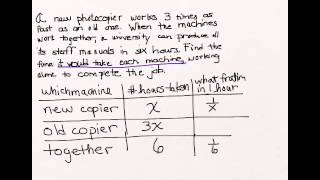 A new photocopier works 3 times as
fast as an old one. When the machines
work together, a university can produce all
its staff manuals in six hours. Find the
time it would take each machine, working
alone to compete the job.
which machine # hours taken what fraction in 1 hour
new copier x 1/x
old copier 3x
together 6 1/6